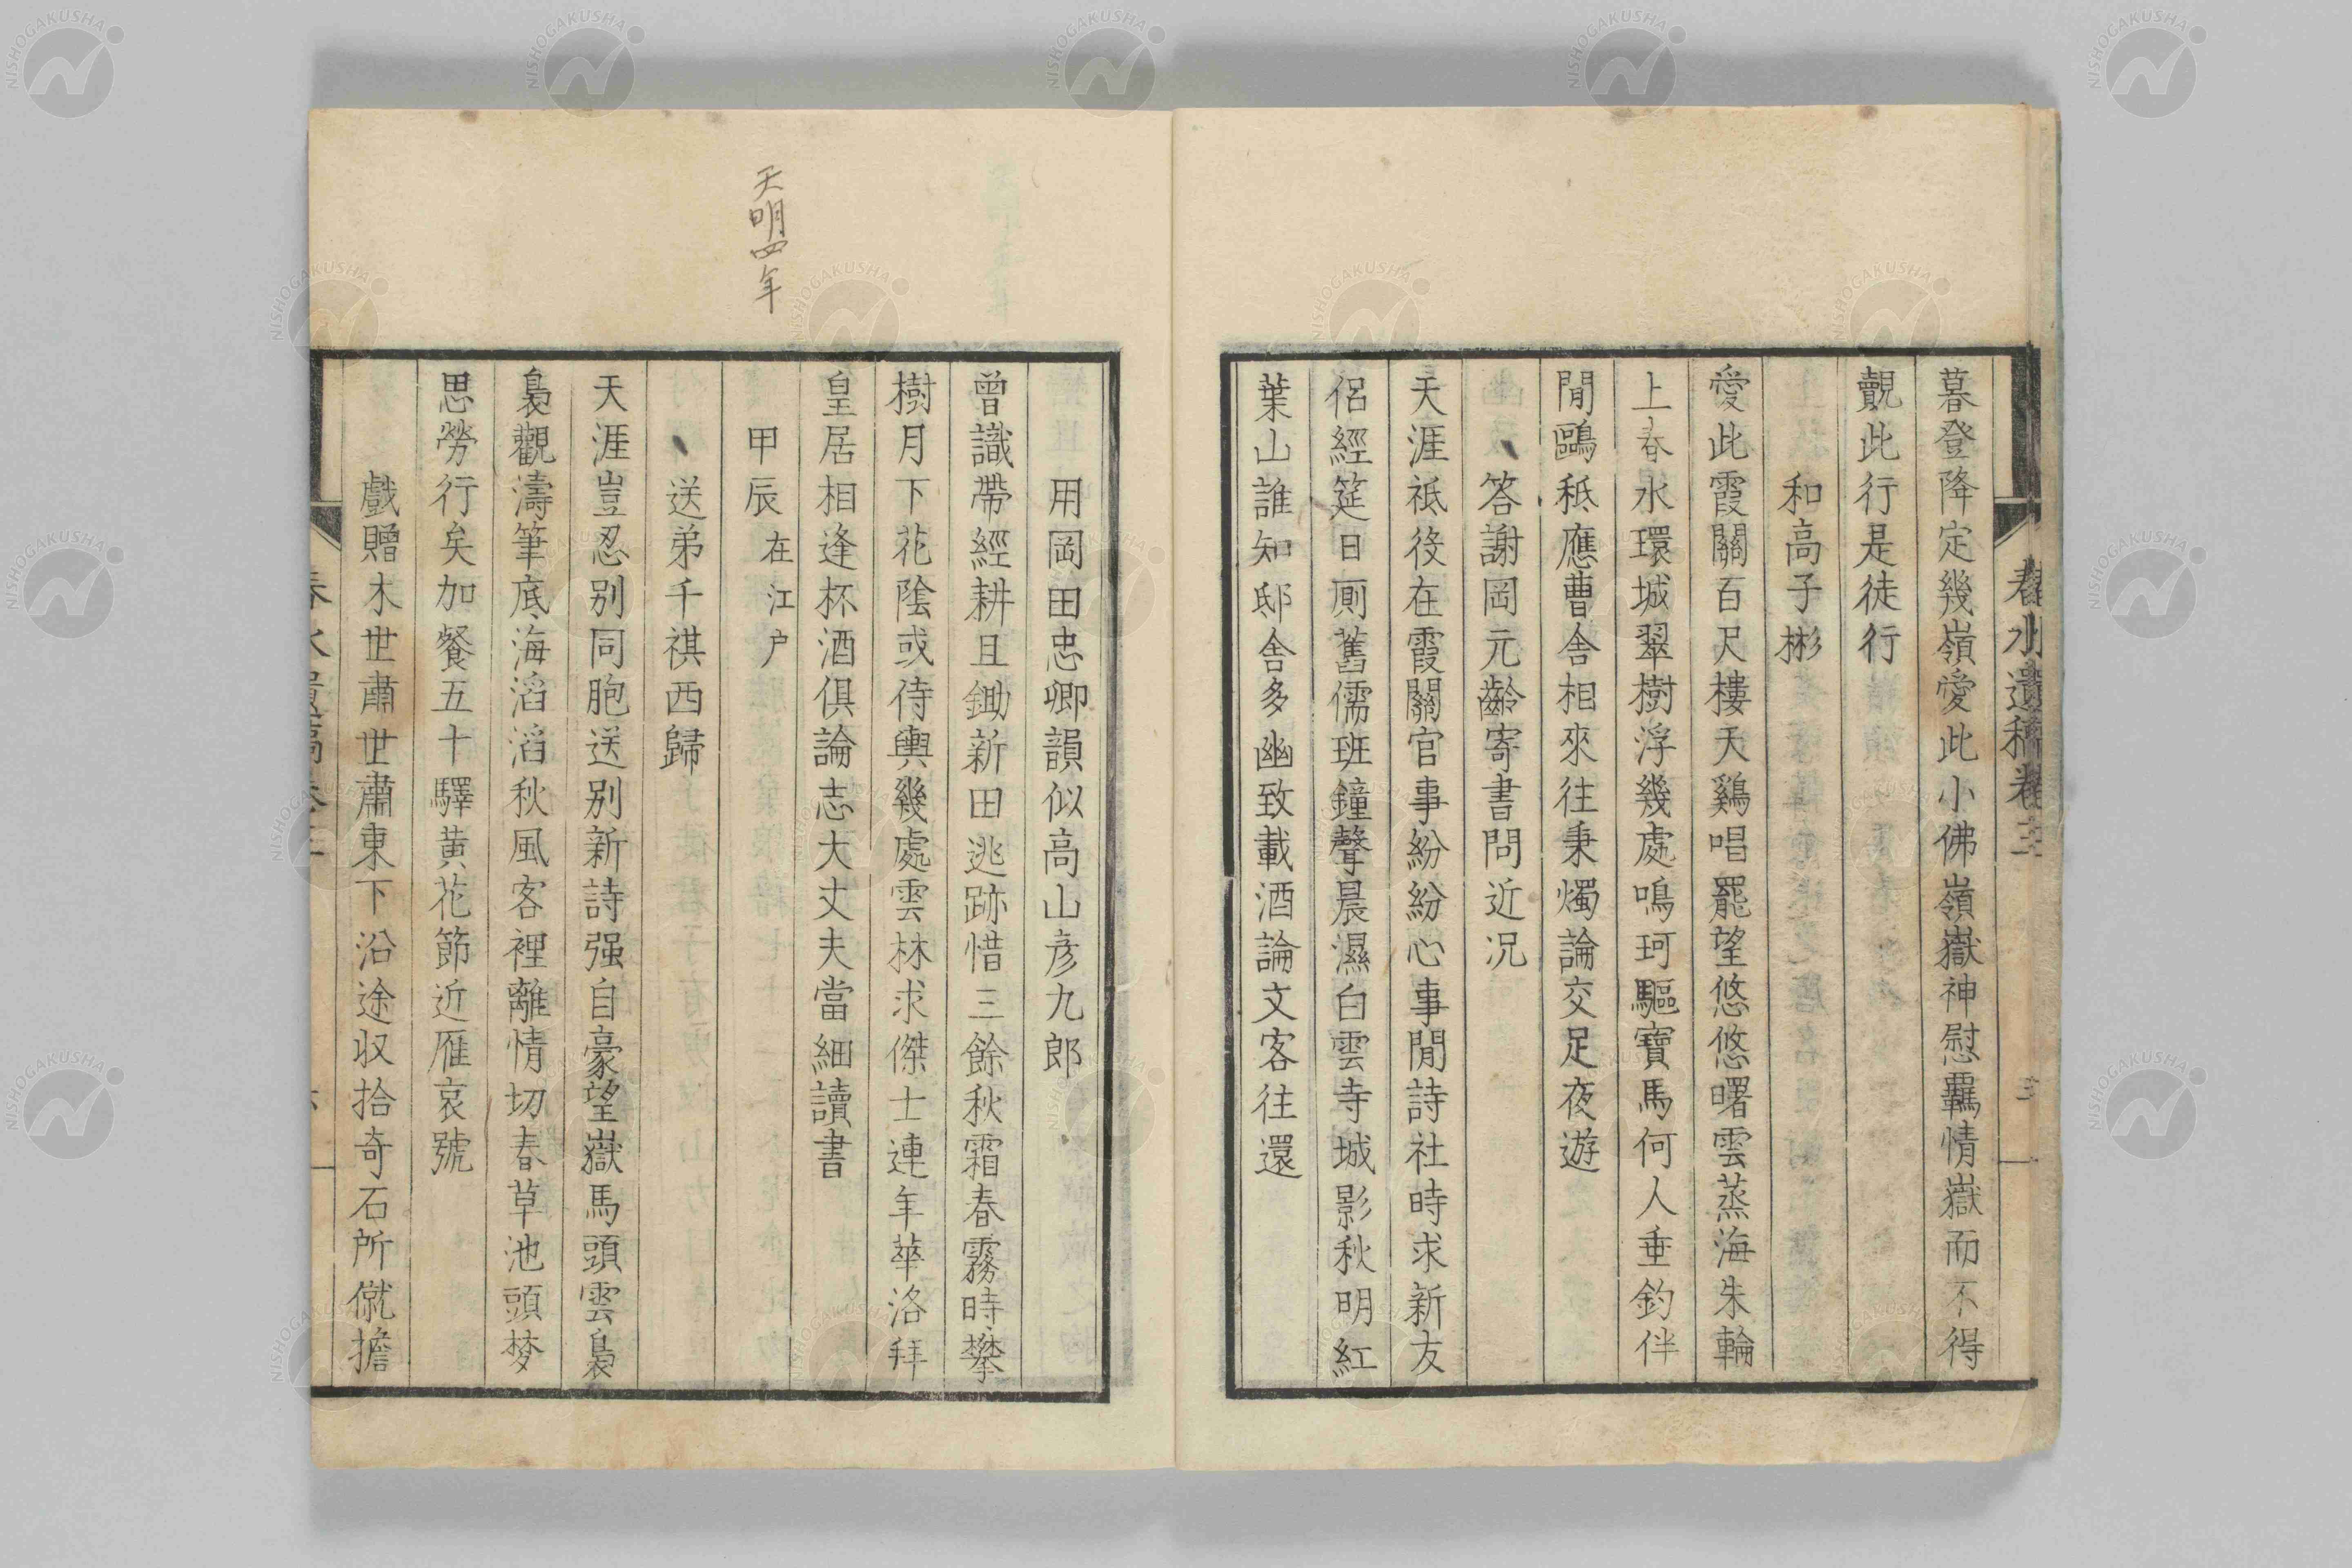 春水遺稿卷三
暮登降定幾嶺愛此小佛嶺嶽神慰羈情嶽而不得
覿此行是徒行
和高子彬
愛此霞關百尺樓天鷄唱罷望悠悠曙雲蒸海朱輪
上春水環城翠樹浮幾處鳴珂驅寶馬何人垂釣伴
閒鷗秪應曹舍相來往秉燭論交足夜遊
答謝岡元齡寄書問近况
天涯祗役在霞關官事紛紛心事閒詩社時求新友
侶經筵日厠舊儒班鐘聲晨濕白雲寺城影秋明紅
葉山誰知邸舍多幽致載酒論文客往還
用岡田忠卿韻似高山彥九郎
曾識帶經耕且鋤新田逃跡惜三餘秋霜春霧時攀
樹月下花陰或侍輿幾處雲林求傑士連年華洛拜
皇居相逢杯酒俱論志大丈夫當細讀書
天明四年
甲辰在江户
送弟千祺西歸
天涯豈忍别同胞送别新詩强自豪望嶽馬頭雲裊
裊觀濤筆底海滔滔秋風客裡離情切春草池頭梦
思勞行矣加餐五十驛黄花節近雁哀號
戲贈木世肅世肅東下沿途収拾奇石所僦擔
NISHOGAKUSHA